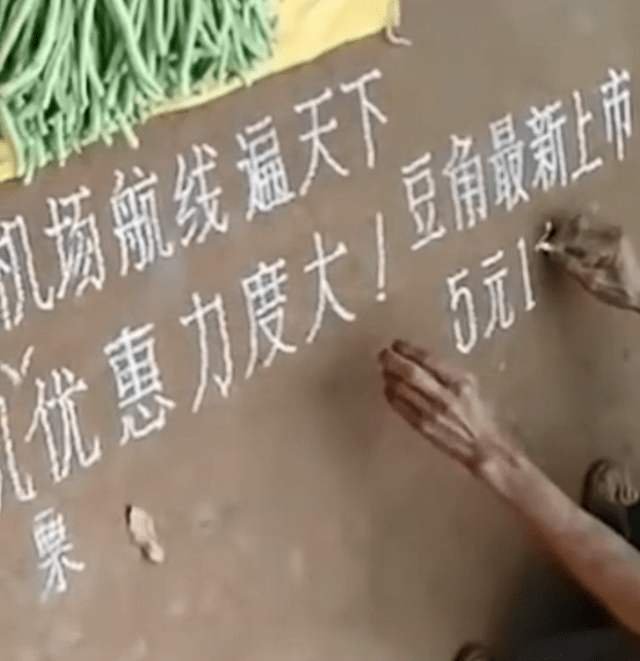 机场航线遍天下
优惠力度大!
豆角最新上市
5元1